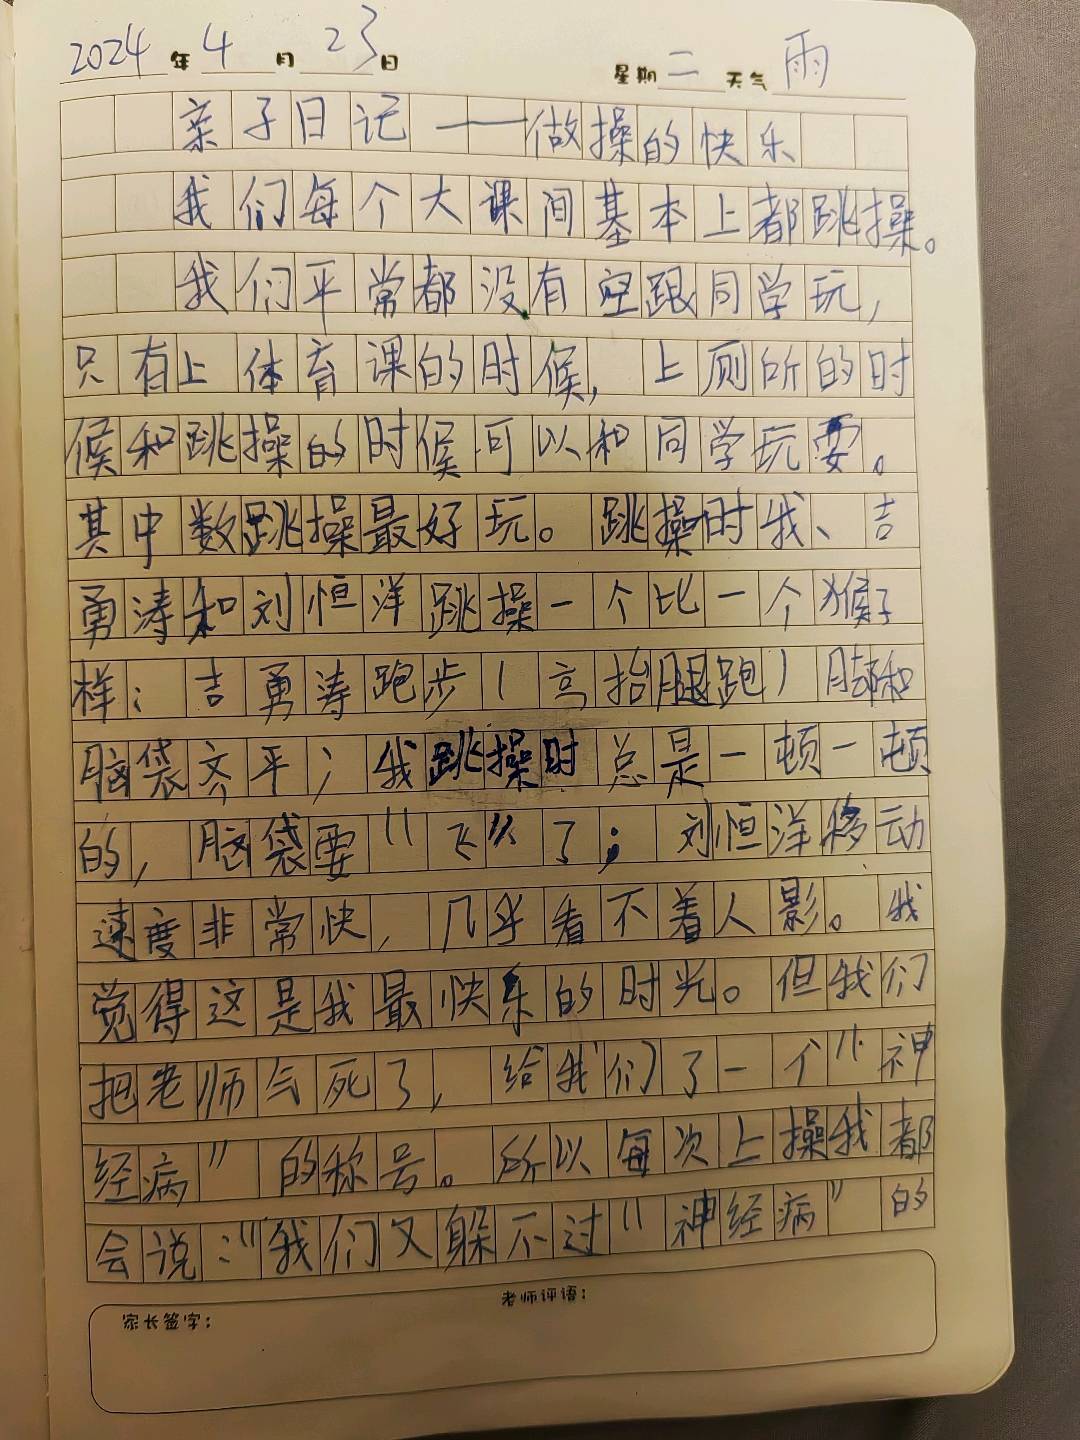 2024年4月23日 星期二 天气雨
亲子日记——做操的快乐
我们每个大课间基本上都跳操。
我们平常都没有空跟同学玩，
只有上体育课的时候，上厕所的时
候和跳操的时候可以和同学玩耍。
其中数跳操最好玩。跳操时我、吉
勇涛和刘恒洋跳操一个比一个猴子
样：吉勇涛跑步（高抬腿跑）脚和
脑袋齐平；我跳操时总是一顿一顿
的，脑袋要“飞”了；刘恒洋移动
速度非常快，几乎看不着人影。我
觉得这是我最快乐的时光。但我们
把老师气死了，给我们了一个“神
经病”的称号。所以每次上操我都
会说：“我们又躲不过“神经病”的
老师评语：
家长签字：